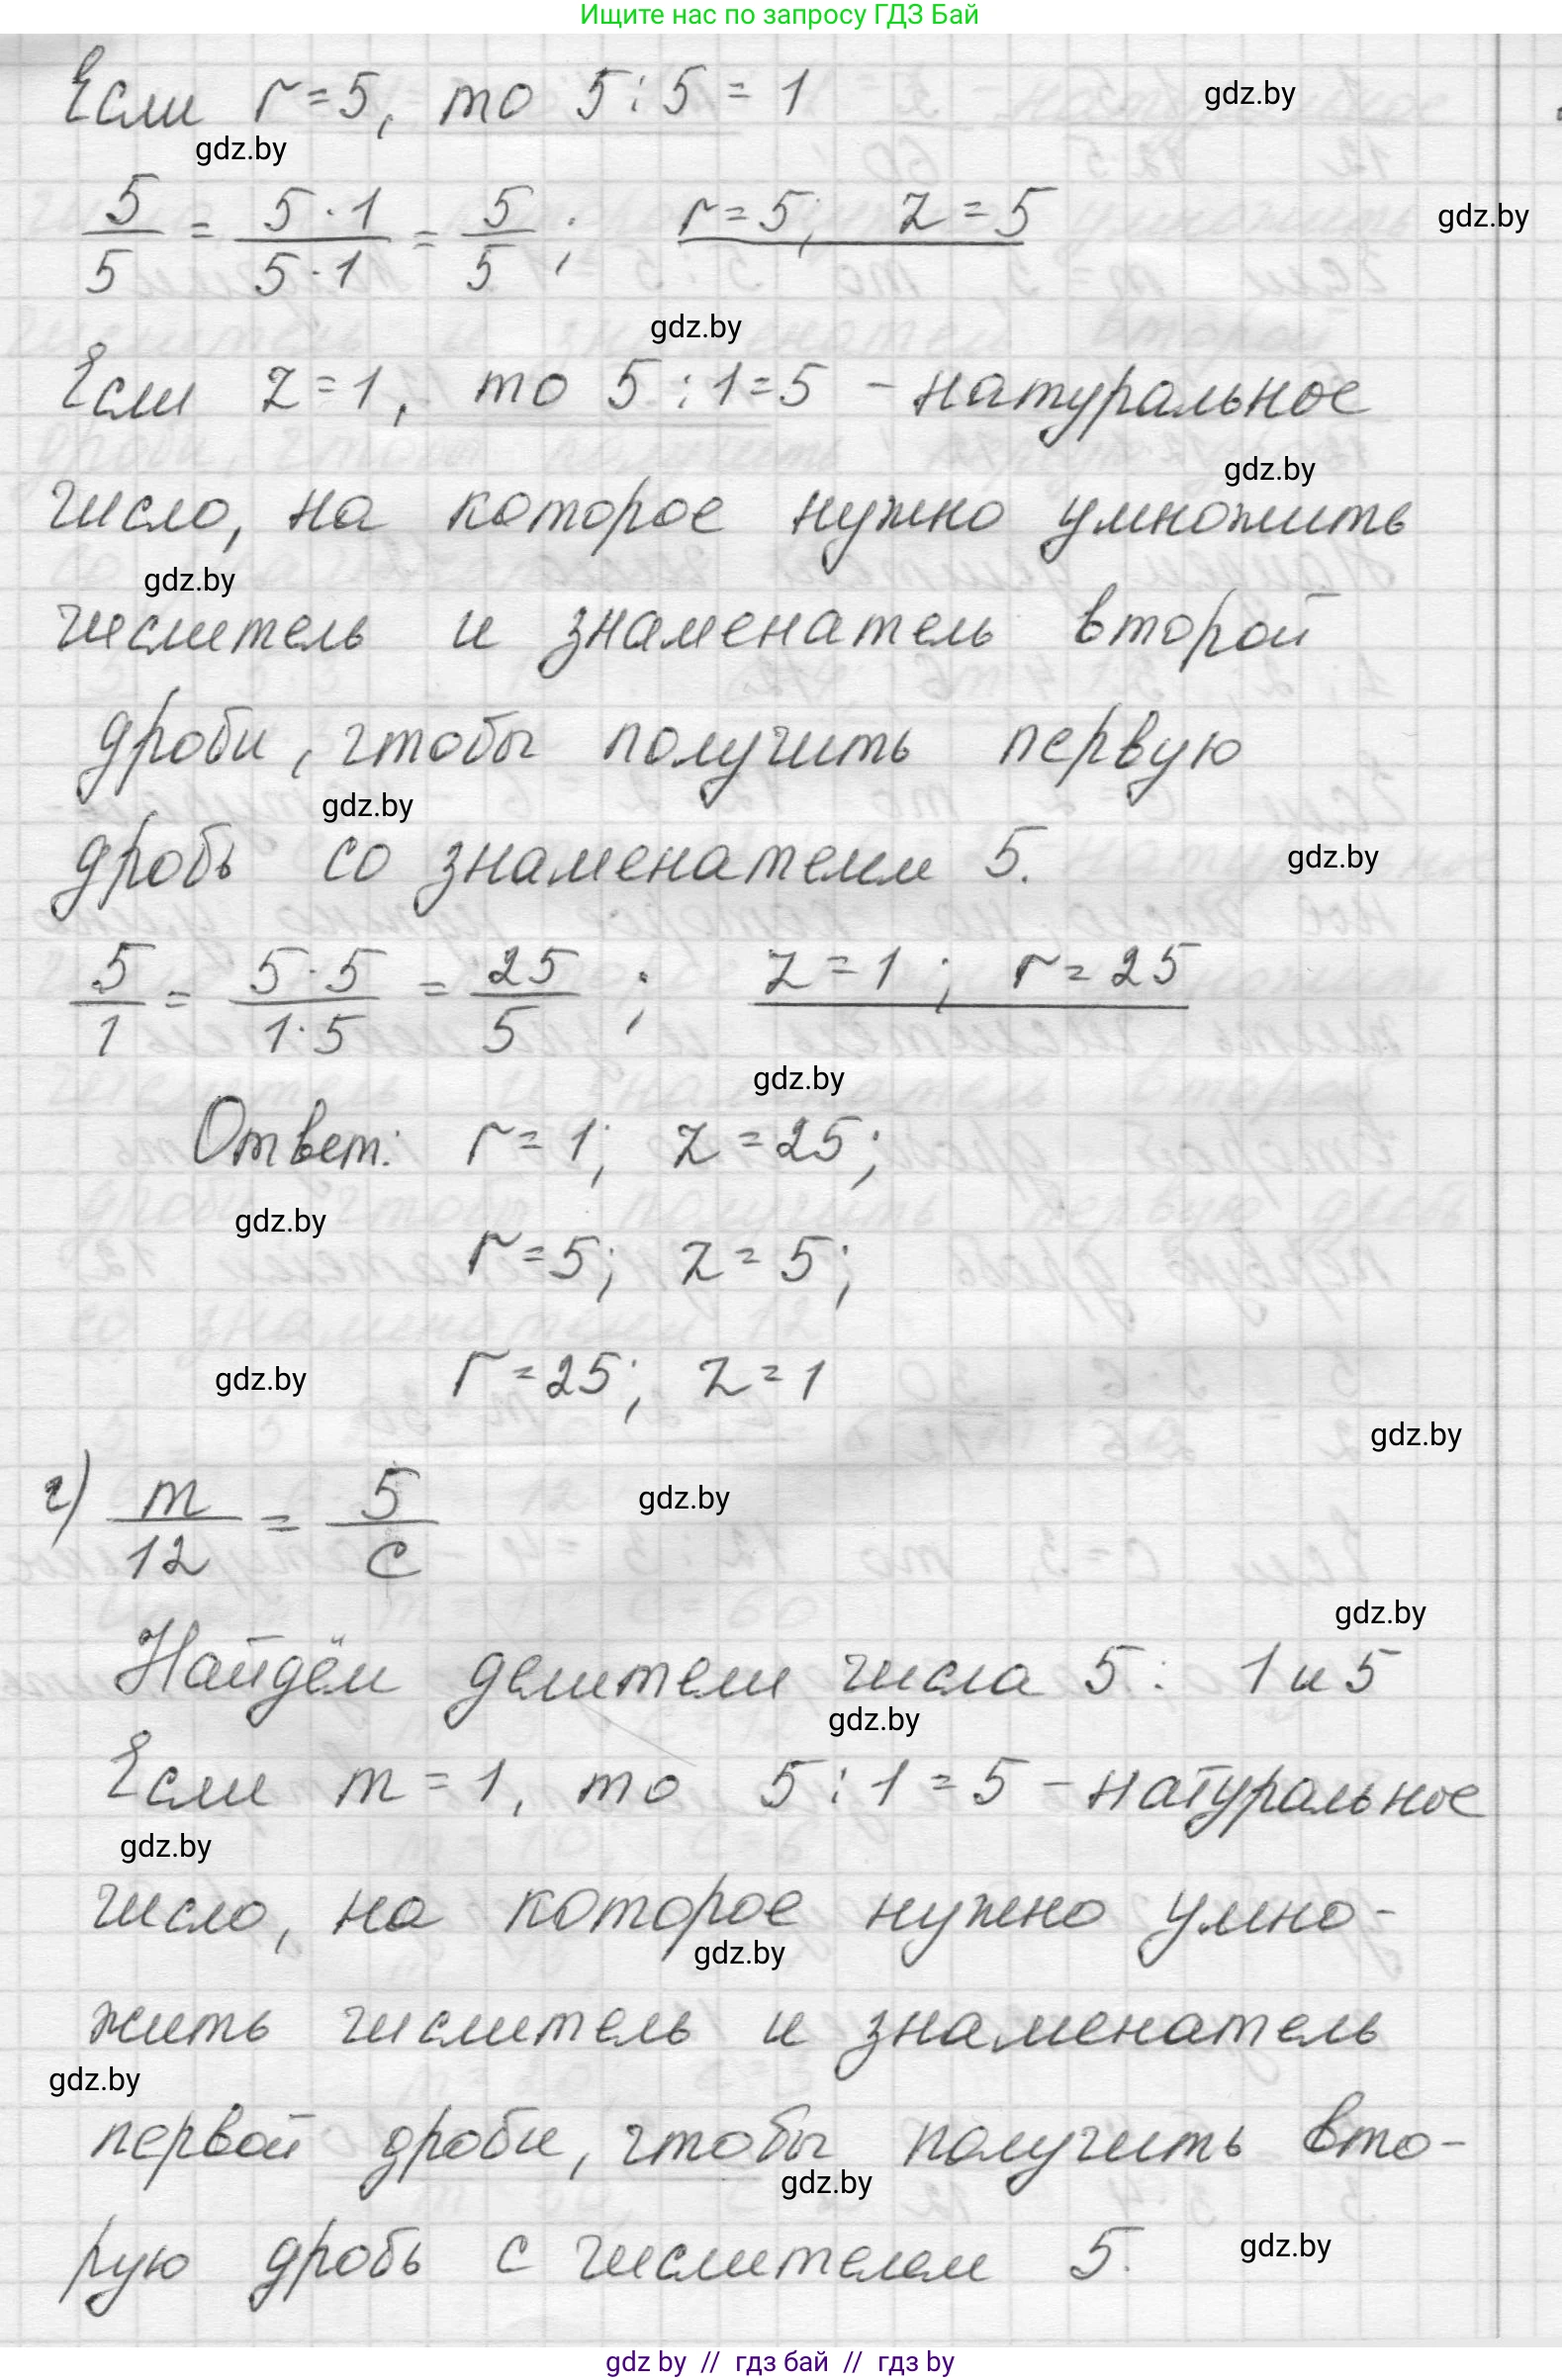 Ищите нас по запросу ГДЗ Бай
Если r=5, то 5:5=1
gdz.by
gdz.by
5/5 = 5·1/5·1 = 5/5; r=5; z=5
gdz.by
gdz.by
Если z=1, то 5:1=5 - натуральное
gdz.by
число, на которое нужно умножить
gdz.by
числитель и знаменатель второй
дроби, чтобы получить первую
gdz.by
дробь со знаменателем 5.
gdz.by
5/1 = 5·5/1·5 = 25/5; z=1; r=25
gdz.by
Ответ: r=1; z=25;
gdz.by
r=5; z=5;
gdz.by
r=25; z=1
gdz.by
г) m/12 = 5/c
gdz.by
gdz.by
Найдём делители числа 5: 1 и 5
gdz.by
Если m=1, то 5:1=5 - натуральное
gdz.by
число, на которое нужно умно-
gdz.by
жить числитель и знаменатель
gdz.by
первой дроби, чтобы получить вто-
gdz.by
рую дробь с числителем 5.
gdz.by
gdz by // гдз бай // гдз by